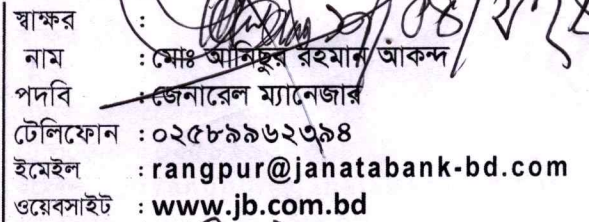 স্বাক্ষর :
নাম : মোঃ আনিছুর রহমান আকন্দ
পদবি : জেনারেল ম্যানেজার
টেলিফোন : ০২৫৮৯৯৬২৩৯৪
ইমেইল : rangpur@janatabank-bd.com
ওয়েবসাইট : www.jb.com.bd